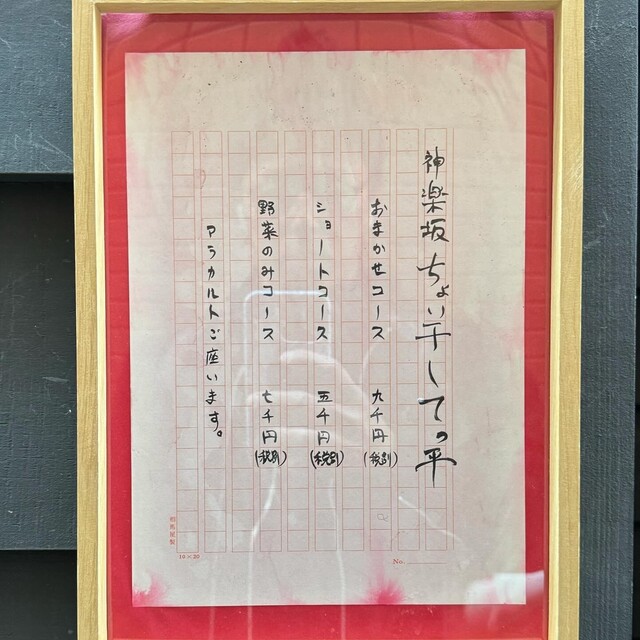 神楽坂 ちょい干してっ平
おまかせコース 九千円(税別)
ショートコース 五千円(税別)
野菜のみコース 七千円(税別)
アラカルトご座います。
相馬屋製
10×20
No.